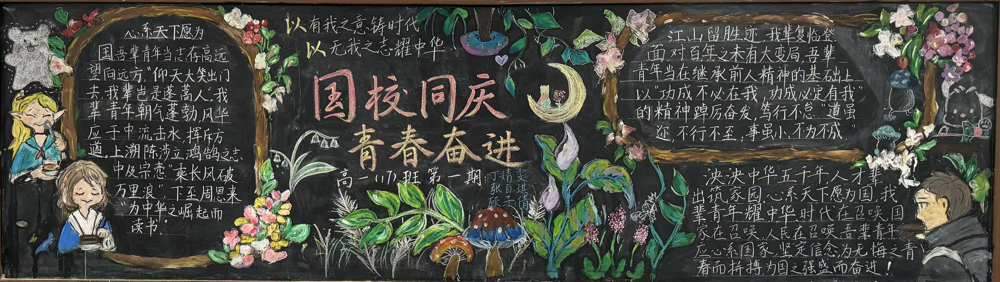 心系天下愿为
国吾辈青年当志存高远
望向远方,“仰天大笑出门
去,我辈岂是蓬蒿人”,我
辈青年朝气蓬勃,风华
应于中流击水,挥斥方
遒,上溯陈涉立鸿鹄之志
中及宗悫“乘长风破
万里浪”,下至周恩来
“为中华之崛起而
读书”
以有我之意铸时代
以无我之志耀中华
国校同庆
青春奋进
高一(17)班第一期
江山留胜迹,我辈复临登
面对百年之未有大变局,吾辈
青年当在继承前人精神的基础上
以“功成不必在我,功成必定有我”
的精神踔厉奋发,笃行不怠“道虽
迩,不行不至,事虽小,不为不成”
泱泱中华五千年人才辈
出,筑家园,心系天下愿为国,我
辈青年耀中华时代在召唤,国
家在召唤,人民在召唤,吾辈青年
应心系国家,坚定信念,为无悔之青
春而拼搏,为国之强盛而奋进!